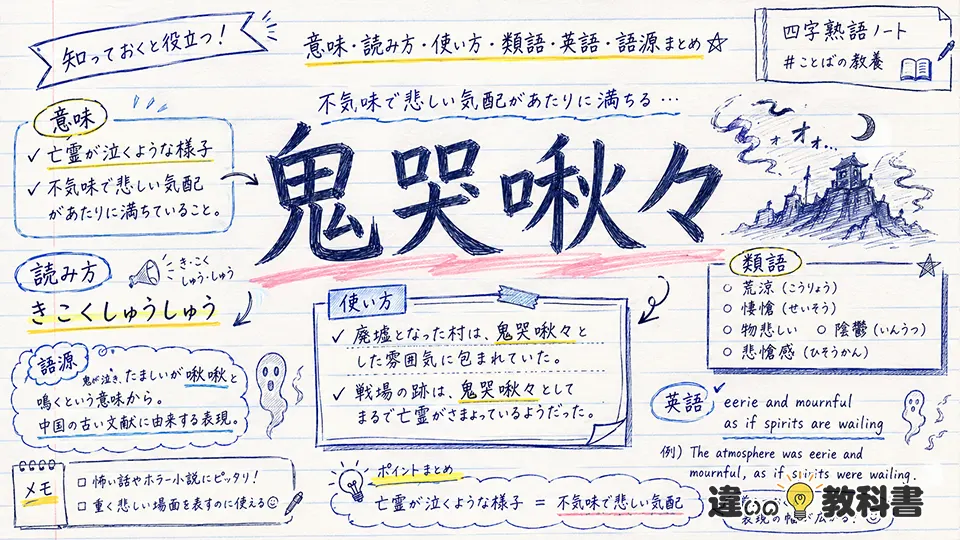 知っておくと役立つ!
意味・読み方・使い方・類語・英語・語源まとめ☆
四字熟語ノート
#ことばの教養
不気味で悲しい気配があたりに満ちる…
鬼哭啾々
意味
✓ 亡霊が泣くような様子
✓ 不気味で悲しい気配
があたりに満ちていること。
ォオォ…
読み方
き・こく
しゅう・しゅう
きこくしゅうしゅう
使い方
✓ 廃墟となった村は、鬼哭啾々と
した雰囲気に包まれていた。
✓ 戦場の跡は、鬼哭啾々として
まるで亡霊がさまよっているようだった。
類語
○ 荒涼(こうりょう)
○ 悽愴(せいそう)
○ 物悲しい ○ 陰鬱(いんうつ)
○ 悲愴感(ひそうかん)
語源
鬼が泣き、たましいが啾啾と
鳴くという意味から。
中国の古い文献に由来する表現。
英語
eerie and mournful
as if spirits are wailing
例) The atmosphere was eerie and
mournful, as if spirits were wailing.
メモ
□ 怖い話やホラー小説にピッタリ!
□ 重く悲しい場面を表すのに使える☺
ポイントまとめ
亡霊が泣くような様子 = 不気味で悲しい気配
違いの教科書
表現の幅が広がる!